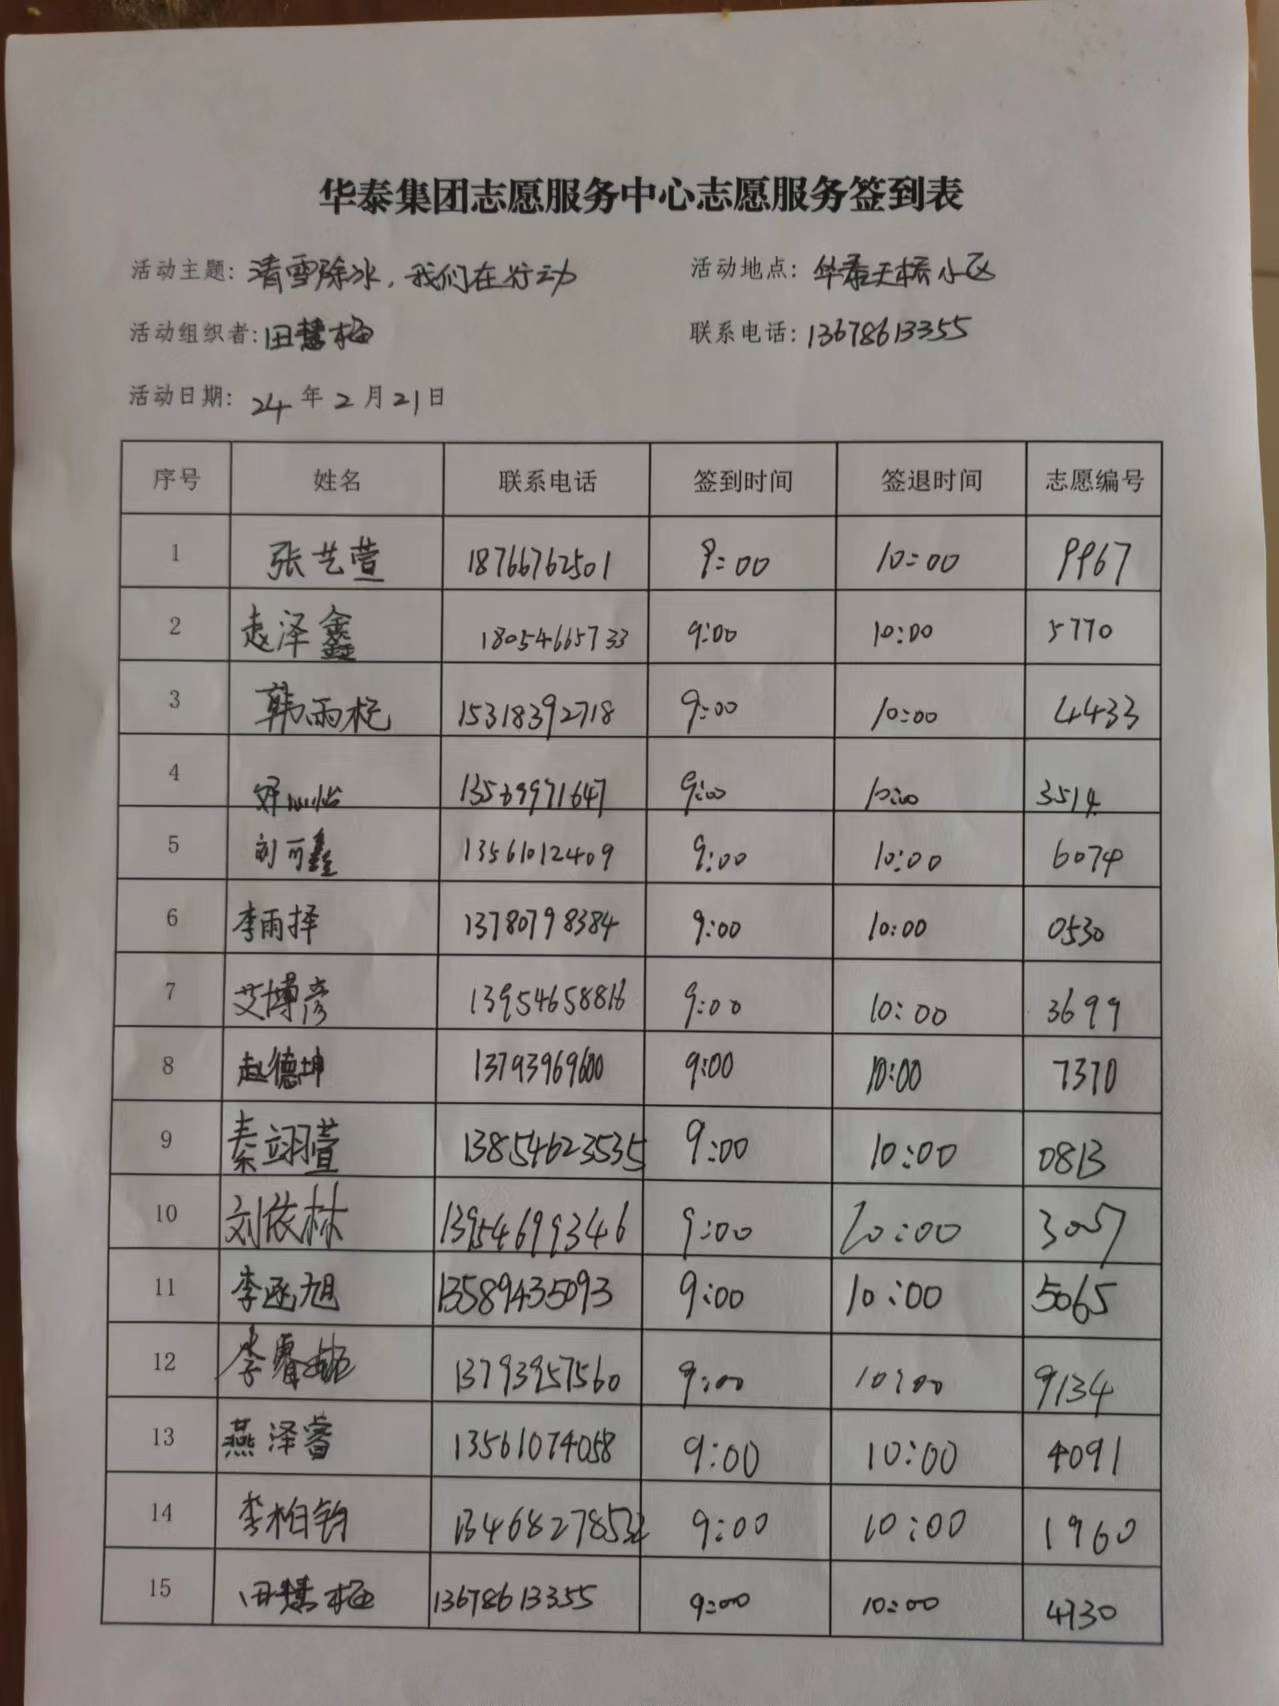 华泰集团志愿服务中心志愿服务签到表
活动主题: 清雪除冰，我们在行动 活动地点: 华泰天桥小区
活动组织者: 田慧梅 联系电话: 13678613355
活动日期: 24 年 2 月 21 日
序号 姓名 联系电话 签到时间 签退时间 志愿编号
1 张艺萱 18766762501 9:00 10:00 9967
2 赵泽鑫 18054665733 9:00 10:00 5770
3 韩雨 15318392718 9:00 10:00 4433
4 9:00 10:00 3514
5 刘可鑫 13561012409 9:00 10:00 6074
6 李雨择 13780798384 9:00 10:00 0530
7 艾博彦 13954658816 9:00 10:00 3699
8 赵德坤 13793969600 9:00 10:00 7370
9 秦翊萱 13854623535 9:00 10:00 0813
10 刘依林 13954699346 9:00 10:00 3057
11 李函旭 13589435093 9:00 10:00 5065
12 李睿 13793957560 9:00 10:00 9134
13 燕泽睿 13561074058 9:00 10:00 4091
14 李柏钧 9:00 10:00 1960
15 田慧梅 13678613355 9:00 10:00 4730